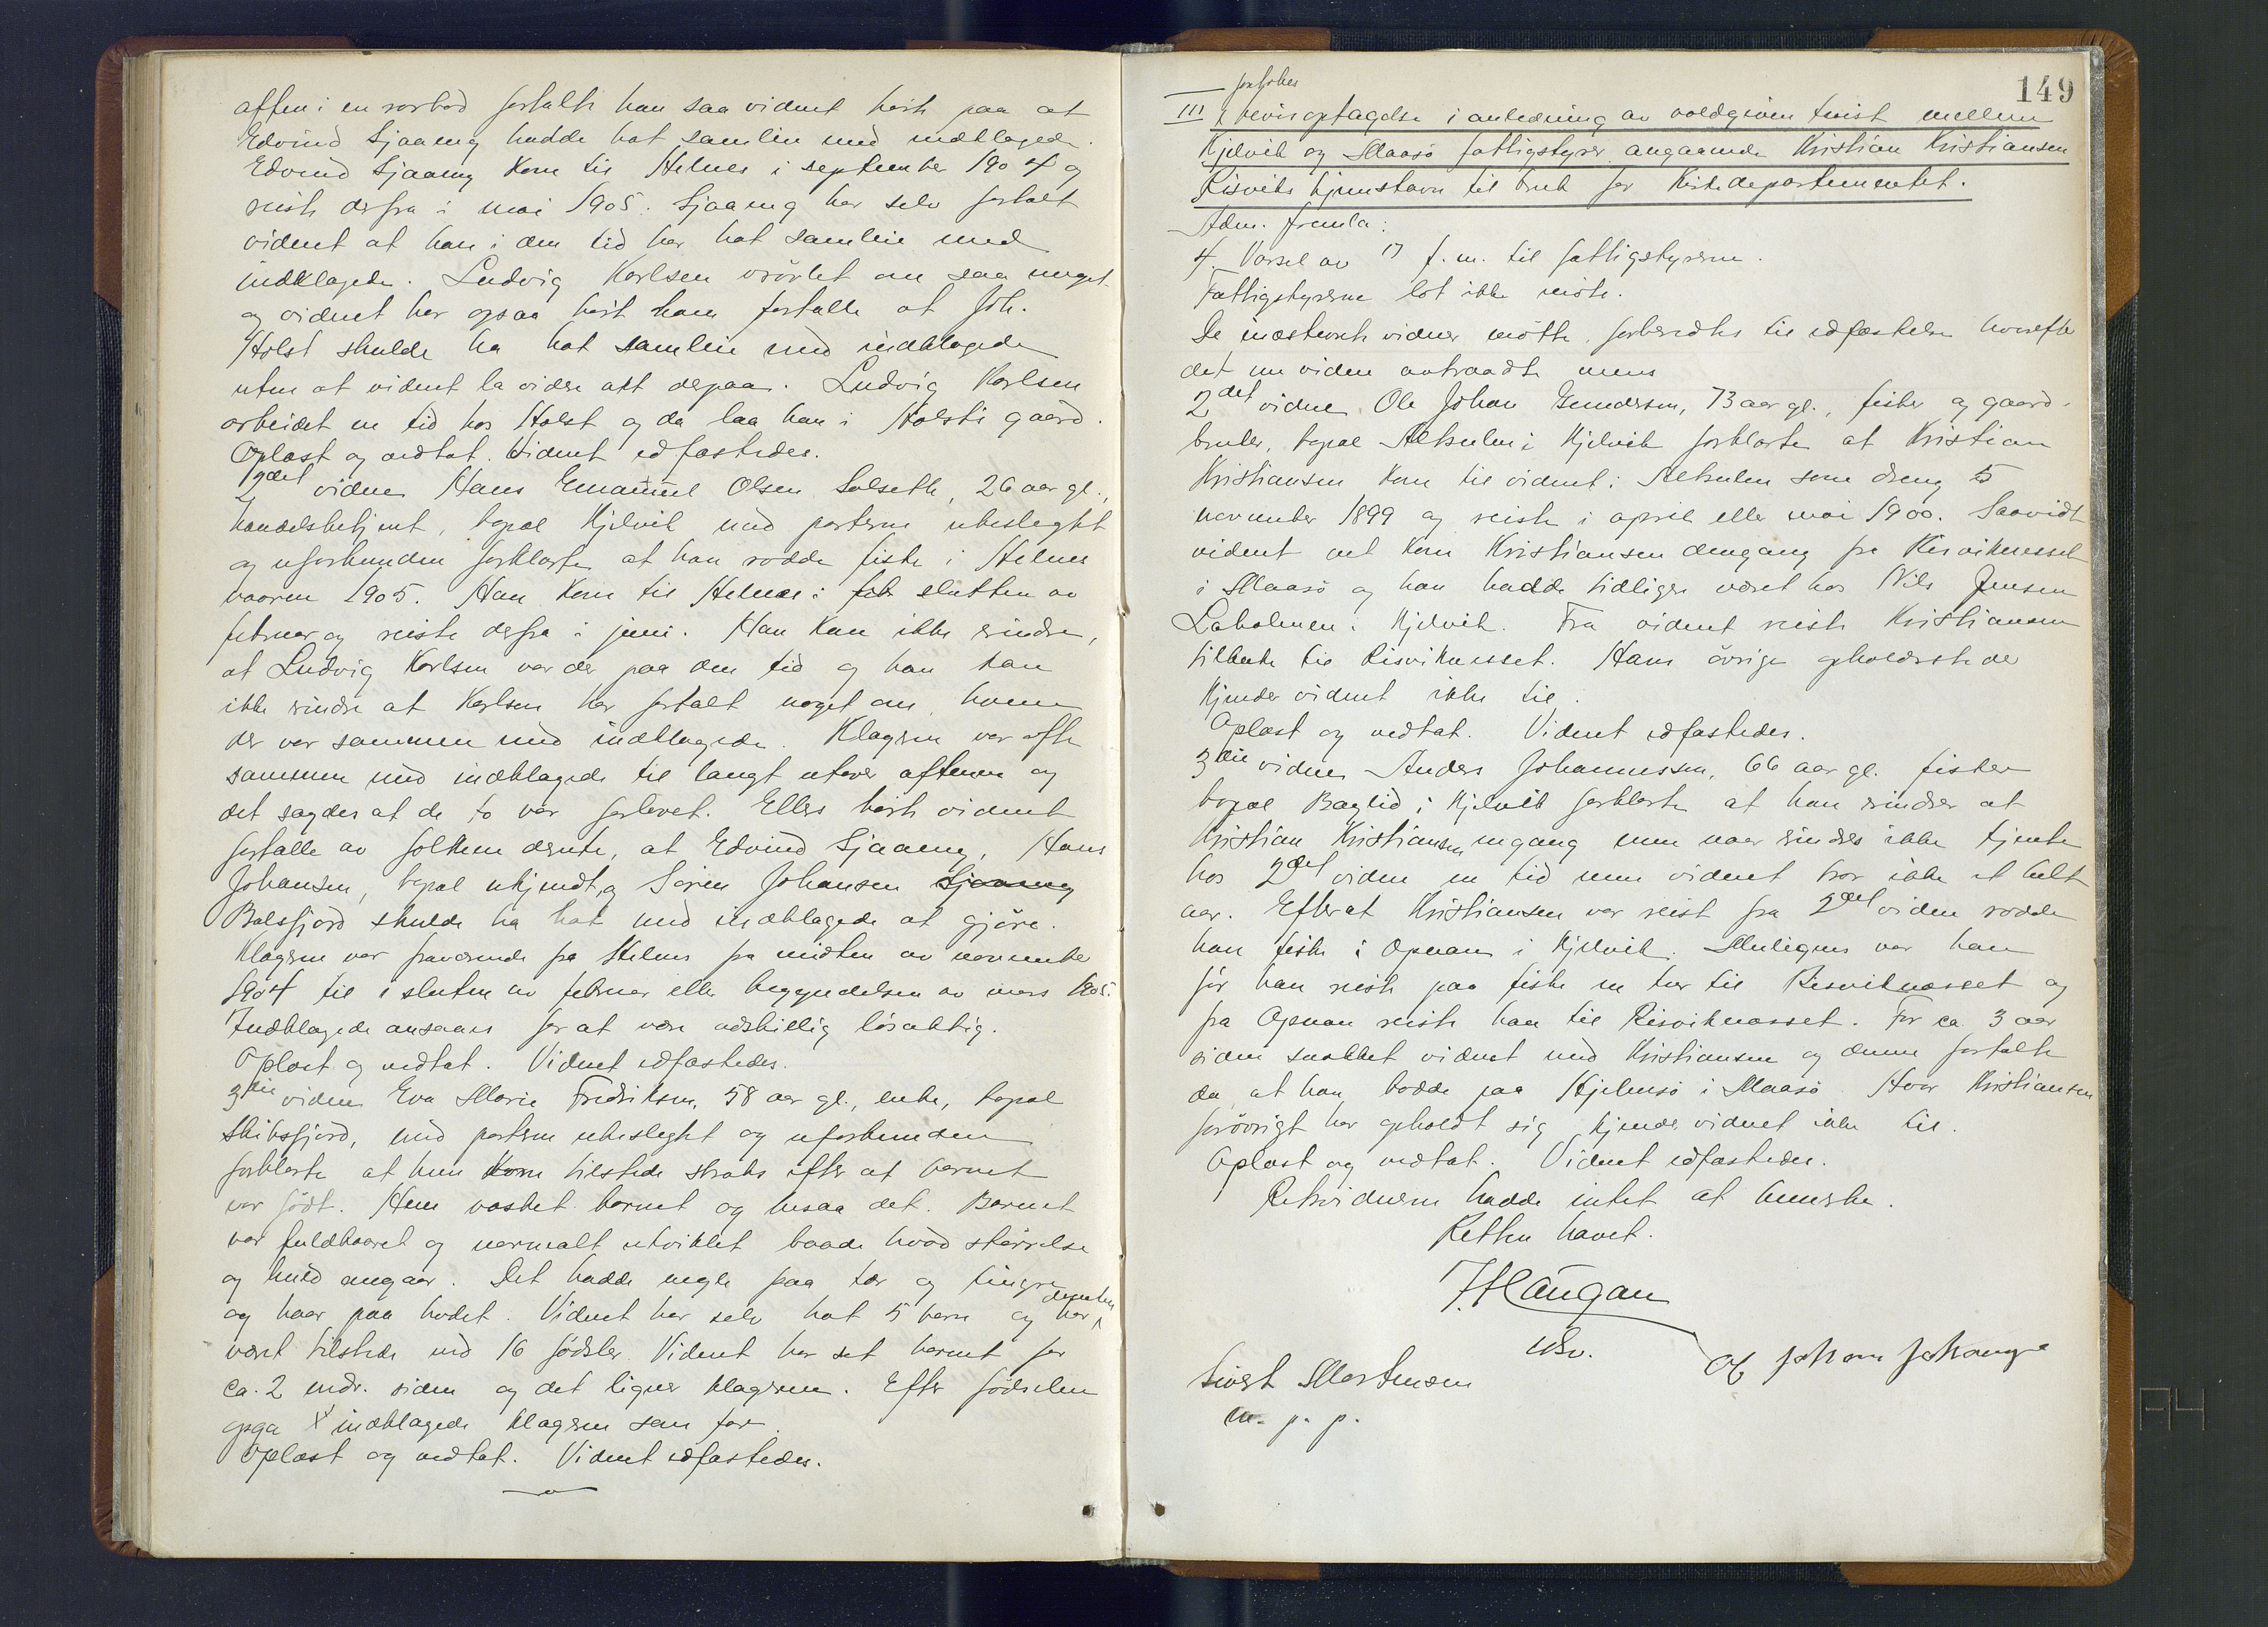 aften i en rorbod fortalte han saa vidnet hørte paa at
Edvind Sjaaeng hadde hat samleie med indklagede.
Edvind Sjaaeng kom til Helnes i september 1904 og
reiste derfra i mai 1905. Sjaaeng har selv fortalt
vidnet at han i den tid har hat samleie med
indklagede. Ludvig Karlsen vrøvlet om saa meget
og vidnet har ogsaa hørt ham fortælle at Joh.
Holst skulde ha hat samleie med indklagede
uten at vidnet la videre akt derpaa. Ludvig Karlsen
arbeidet en tid hos Holst og da laa han i Holsts gaard.
Oplæst og vedtat. Vidnet edfæstedes.
2det vidne Hans Emanuel Olsen Solseth, 26 aar gl.,
handelsbetjent, bopæl Kjelvik med parterne ubeslegtet
og uforbunden forklarte at han rodde fiske i Helnes
vaaren 1905. Han kom til Helnes i feb slutten av
februar og reiste derfra i juni. Han kan ikke erindre,
at Ludvig Karlsen var der paa den tid og han kan
ikke erindre at Karlsen har fortalt noget om, hvem
der var sammen med indklagede. Klageren var ofte
sammen med indklagede til langt utover aftenen og
det sagdes at de to var forlovet. Ellers hørte vidnet
fortælle av folkene derute, at Edvind Sjaaeng, Hans
Johansen, bopæl ukjendt, og Søren Johansen Sjaaeng
Balsfjord skulde ha hat med indklagede at gjøre.
Klageren var fraværende fra Helnes fra midten av november
1904 til i slutten av februar eller begyndelsen av mars 1905.
Indklagede ansaaes for at være adskillig løsaktig.
Oplæst og vedtat. Vidnet edfæstedes.
3die vidne Eva Marie Fredriksen, 58 aar gl., enke, bopæl
Skibsfjord, med parterne ubeslegtet og uforbunden
forklarte at hun kom tilstede straks efter at barnet
var født. Hun vasket barnet og besaa det. Barnet
var fuldbaaret og normalt utviklet baade hvad størrelse
og huld angaar. Det hadde negle paa tær og fingre
og haar paa hodet. Vidnet har selv hat 5 barn og har desuten
været tilstede ved 16 fødsler. Vidnet har set barnet for
ca. 2 mdr. siden og det ligner klageren. Efter fødselen
opga indklagede klageren som far.
Oplæst og vedtat. Vidnet edfæstedes.
149
III bevisoptagelse i anledning av voldgiven tvist mellem
Kjelvik og Maasø fattigstyrer angaaende Kristian Kristiansen
Risviks hjemstavn til bruk for Kirkedepartementet.
Adm. fremla:
4. Varsel av 17 f.m. til fattigstyrerne.
Fattigstyrerne lot ikke møte.
De indstevnte vidner møtte, forberedtes til edfæstelse hvorefter
det ene vidne avtraadte mens
2det vidne Ole Johan Gundersen, 73 aar gl., fisker og gaard-
bruker, bopæl Altsulen i Kjelvik forklarte at Kristian
Kristiansen kom til vidnet i Altsulen som dreng 5
november 1899 og reiste i april eller mai 1900. Saavidt
vidnet vet kom Kristiansen dengang fra Risviknesset
i Maasø og han hadde tidligere været hos Nils Jensen
Laholmen i Kjelvik. Fra vidnet reiste Kristiansen
tilbake til Risviknesset. Hans øvrige opholdssteder
kjender vidnet ikke til.
Oplæst og vedtat. Vidnet edfæstedes.
3die vidne Anders Johannessen, 66 aar gl. fisker
bopæl Bagtid i Kjelvik forklarte at han erindrer at
Kristian Kristiansen engang men naar erindres ikke tjente
hos 2det vidne en tid men vidnet tror ikke et helt
aar. Efterat Kristiansen var reist fra 2det vidne rodde
han fiske i Opnan i Kjelvik. Muligens var han
før han reiste paa fiske en tur til Risviknæsset og
fra Opnan reiste han til Risviknæsset. For ca 3 aar
siden snakket vidnet med Kristiansen og denne fortalte
da at han bodde paa Hjelmsø i Maasø. Hvor Kristiansen
forøvrigt har opholdt sig kjender vidnet ikke til.
Oplæst og vedtat. Vidnet edfæstedes.
Retsvidnerne hadde intet at bemerke.
Retten hævet.
J. Haugan
Sivert Mortensen
m. p. p.